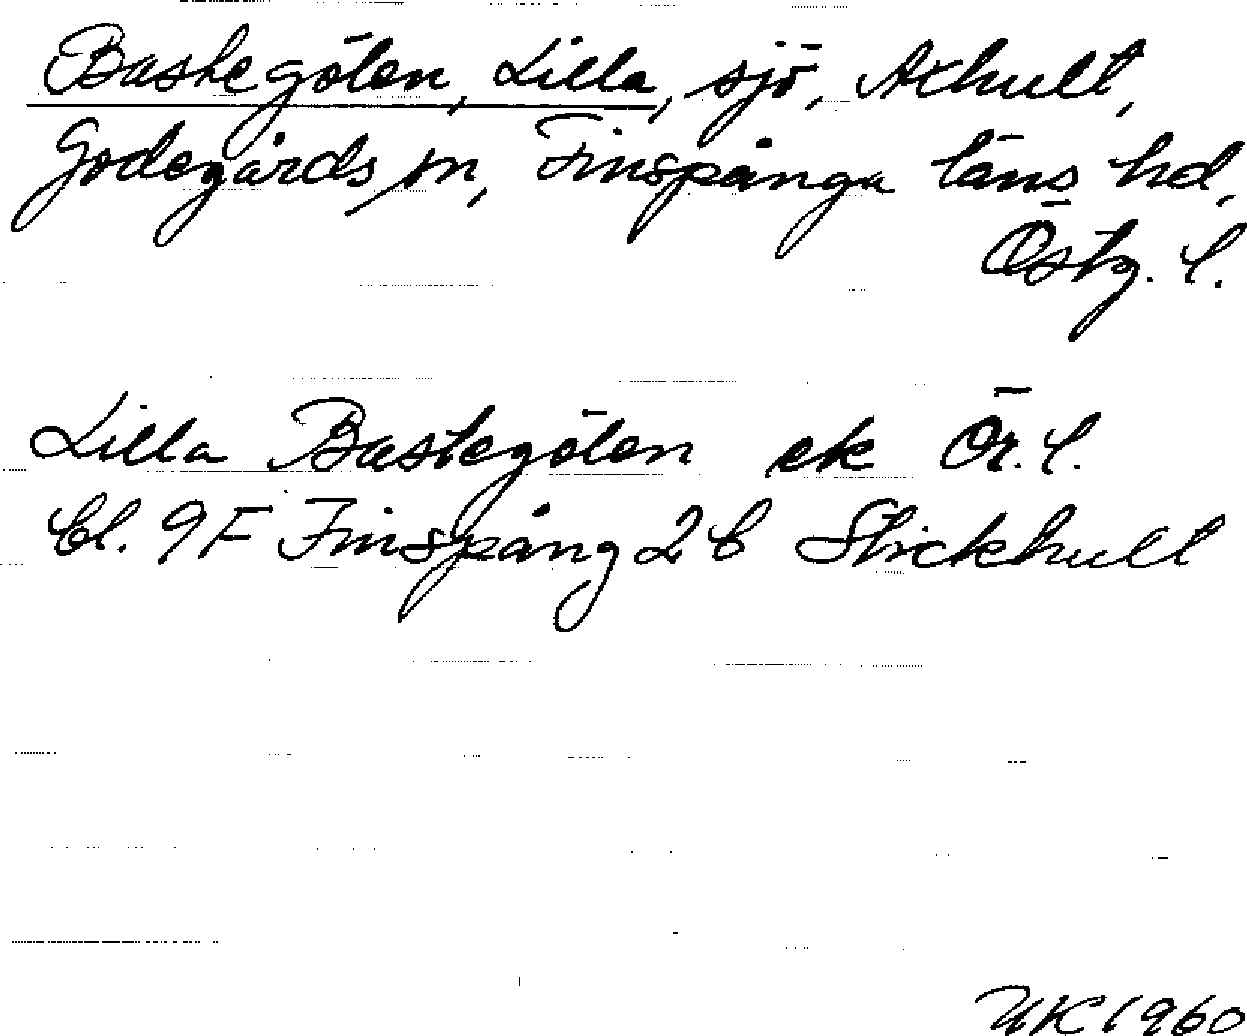 Bastegölen, Lilla, sjö, Axhult,
Godegårds sn, Finspånga läns hd,
Östg. l.
Lilla Bastegölen ek Ör. l.
bl. 9F Finspång 2b Stickhult
UK 1960